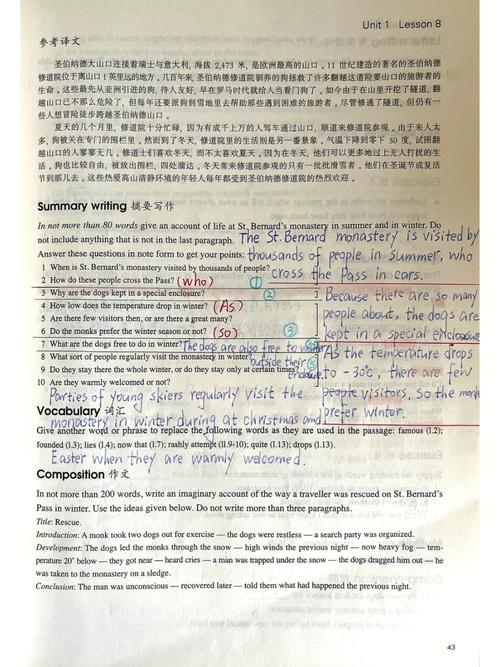 Unit 1 Lesson 8
参考译文
圣伯纳德大山口连接着瑞士与意大利，海拔 2,473 米，是欧洲最高的山口。11 世纪建造的著名的圣伯纳德
修道院位于离山口 1 英里远的地方。几百年来，圣伯纳德修道院驯养的狗拯救了许多翻越这道险要山口的旅游者的
生命。这些最先从亚洲引进的狗，待人友好，早在罗马时代就给人当看门狗了。如今由于在山里开挖了隧道，翻
越山口已不那么危险了，但每年还要派狗到雪地里去帮助那些遇到困难的旅游者。尽管修通了隧道，但仍有一
些人想冒险徒步跨越圣伯纳德山口。
夏天的几个月里，修道院十分忙碌，因为有成千上万的人驾车通过山口，顺道来修道院参观。由于来人太
多，狗被关在专门的围栏里。然而到了冬天，修道院里的生活则是另一番景象。气温下降到零下 30 度，试图翻
越山口的人寥寥无几。修道士们喜欢冬天，而不太喜欢夏天，因为在冬天，他们可以更多地过上无人打扰的生
活。狗也比较自由，被放出围栏，四处溜达。冬天常来修道院参观的只有一批批滑雪者。他们在圣诞节或复活
节到那儿去。这些热爱高山清静环境的年轻人每年都受到圣伯纳德修道院的热烈欢迎。
Summary writing 摘要写作
In not more than 80 words give an account of life at St. Bernard's monastery in summer and in winter. Do
not include anything that is not in the last paragraph. The St.Bernard monastery is visited by
Answer these questions in note form to get your points: thousands of people in Summer, who
1 When is St. Bernard's monastery visited by thousands of people? cross the Pass in cars.
2 How do these people cross the Pass? (who) ①
3 Why are the dogs kept in a special enclosure? ② Because there are so many
4 How low does the temperature drop in winter? (As) people about, the dogs are
5 Are there few visitors then, or are there a great many?
6 Do the monks prefer the winter season or not? (so) ③ kept in a special enclosure
7 What are the dogs free to do in winter? The dogs are also free to As the temperature drops
8 What sort of people regularly visit the monastery in winter? outside their
9 Do they stay there the whole winter, or do they stay only at certain times? ⑤ to -30℃, there are few
10 Are they warmly welcomed or not? people visitors, So the monks
Parties of young skiers regularly visit the prefer winter.
Vocabulary 词汇 monastery in winter during at christmas and
Give another word or phrase to replace the following words as they are used in the passage: famous (l.2);
founded (l.3); lies (l.4); now that (l.7); rashly attempt (ll.9-10); quite (l.13); drops (l.13).
Easter when they are warmly welcomed.
Composition 作文
In not more than 200 words, write an imaginary account of the way a traveller was rescued on St. Bernard's
Pass in winter. Use the ideas given below. Do not write more than three paragraphs.
Title: Rescue.
Introduction: A monk took two dogs out for exercise — the dogs were restless — a search party was organized.
Development: The dogs led the monks through the snow — high winds the previous night — now heavy fog — tem-
perature 20° below — they got near — heard cries — a man was trapped under the snow — the dogs dragged him out — he
was taken to the monastery on a sledge.
Conclusion: The man was unconscious — recovered later — told them what had happened the previous night.
43